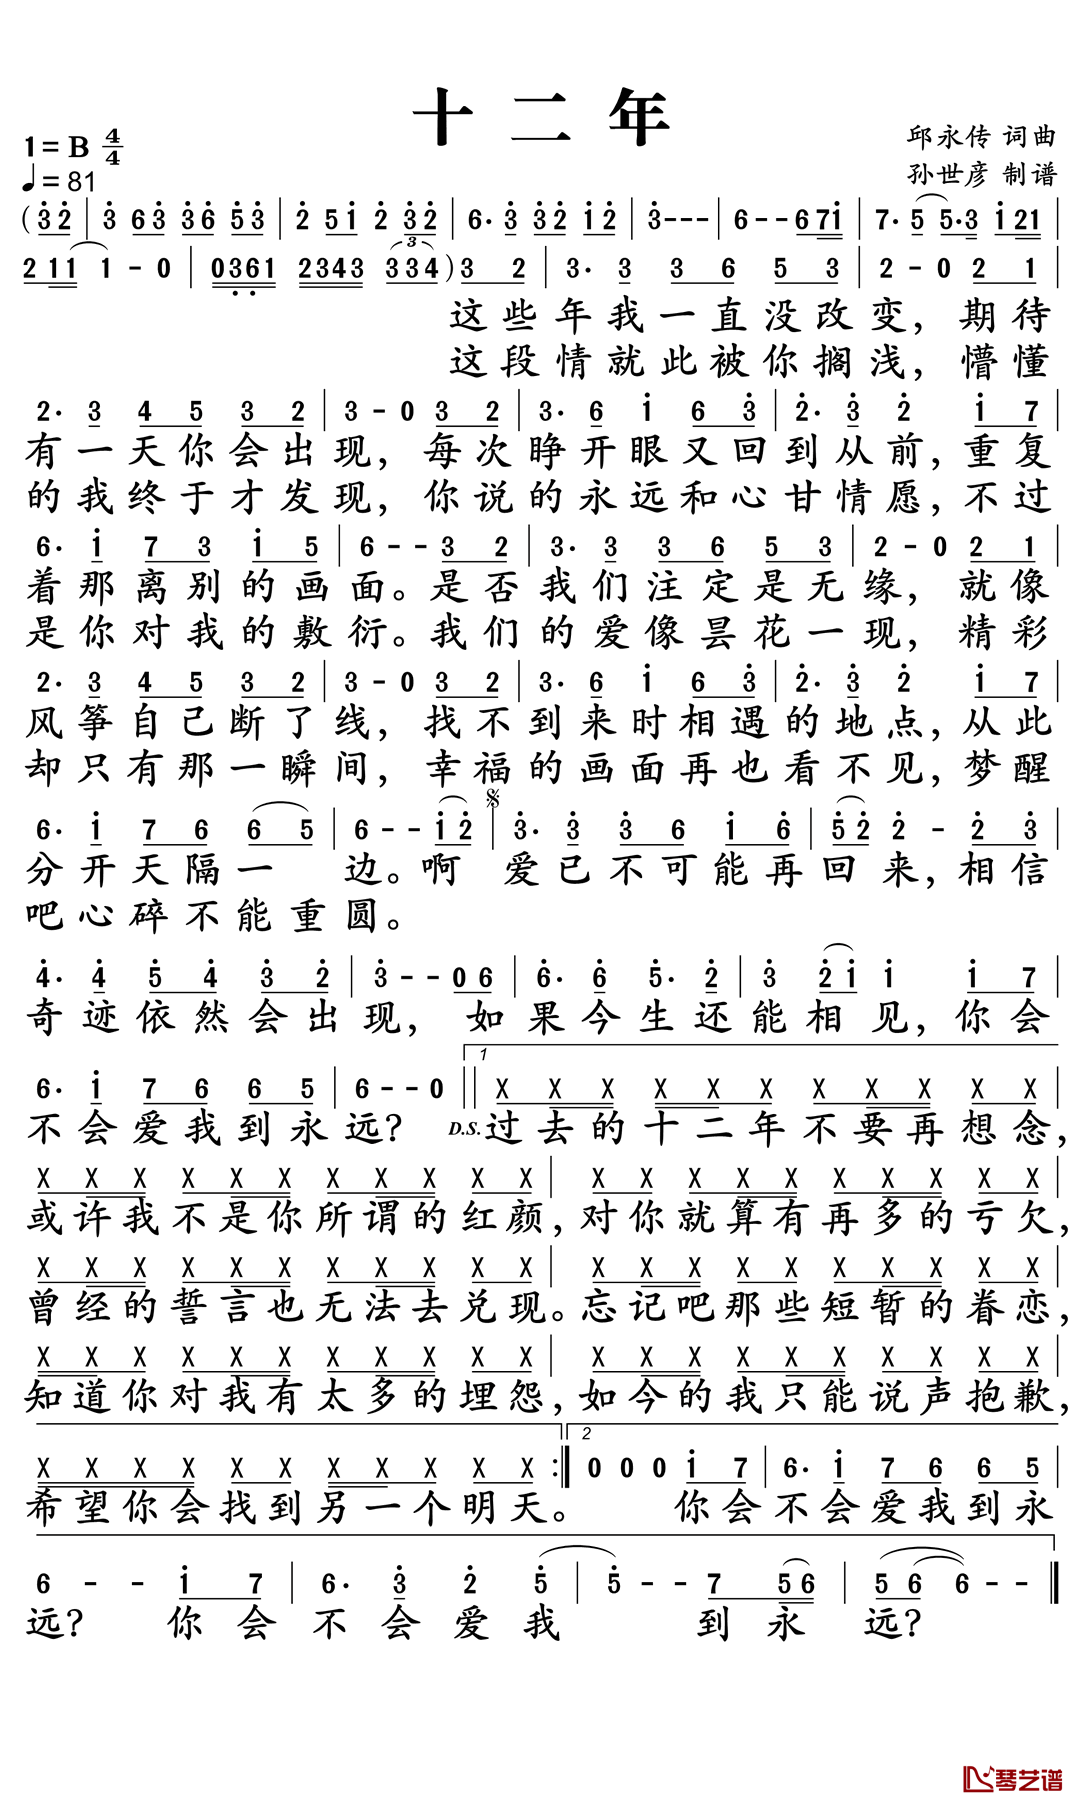 十二年
1=B 4/4
邱永传 词曲
♩=81
孙世彦 制谱
(3 2 | 3 6 3 3 6 5 3 | 2 5 1 2 3 2 | 6· 3 3 2 1 2 | 3 - - - | 6 - - 6 7 1 | 7· 5 5· 3 1 2 1 |
2 1 1 1 - 0 | 0 3 6 1 2 3 4 3 3 3 4) 3 2 | 3· 3 3 6 5 3 | 2 - 0 2 1 |
这些年我一直没改变，期待
这段情就此被你搁浅，懵懂
2· 3 4 5 3 2 | 3 - 0 3 2 | 3· 6 1 6 3 | 2· 3 2 1 7 |
有一天你会出现，每次睁开眼又回到从前，重复
的我终于才发现，你说的永远和心甘情愿，不过
6· 1 7 3 1 5 | 6 - - 3 2 | 3· 3 3 6 5 3 | 2 - 0 2 1 |
着那离别的画面。是否我们注定是无缘，就像
是你对我的敷衍。我们的爱像昙花一现，精彩
2· 3 4 5 3 2 | 3 - 0 3 2 | 3· 6 1 6 3 | 2· 3 2 1 7 |
风筝自己断了线，找不到来时相遇的地点，从此
却只有那一瞬间，幸福的画面再也看不见，梦醒
6· 1 7 6 6 5 | 6 - - 1 2 | 3· 3 3 6 1 6 | 5 2 2 - 2 3 |
分开天隔一边。啊 爱已不可能再回来，相信
吧心碎不能重圆。
4· 4 5 4 3 2 | 3 - - 0 6 | 6· 6 5· 2 | 3 2 1 1 1 7 |
奇迹依然会出现，如果今生还能相见，你会
6· 1 7 6 6 5 | 6 - - 0 || 1 X X X X X X X X X X X
不会爱我到永远？ D.S. 过去的十二年不要再想念，
X X X X X X X X X X X | X X X X X X X X X X |
或许我不是你所谓的红颜，对你就算有再多的亏欠，
X X X X X X X X X X X | X X X X X X X X X X |
曾经的誓言也无法去兑现。忘记吧那些短暂的眷恋，
X X X X X X X X X X X | X X X X X X X X X X |
知道你对我有太多的埋怨，如今的我只能说声抱歉，
X X X X X X X X X X X :| 2 0 0 0 1 7 | 6· 1 7 6 6 5 |
希望你会找到另一个明天。 你会不会爱我到永
6 - - 1 7 | 6· 3 2 5 | 5 - - 7 5 6 | 5 6 6 - - |
远？ 你会不会爱我 到永远？
琴艺谱